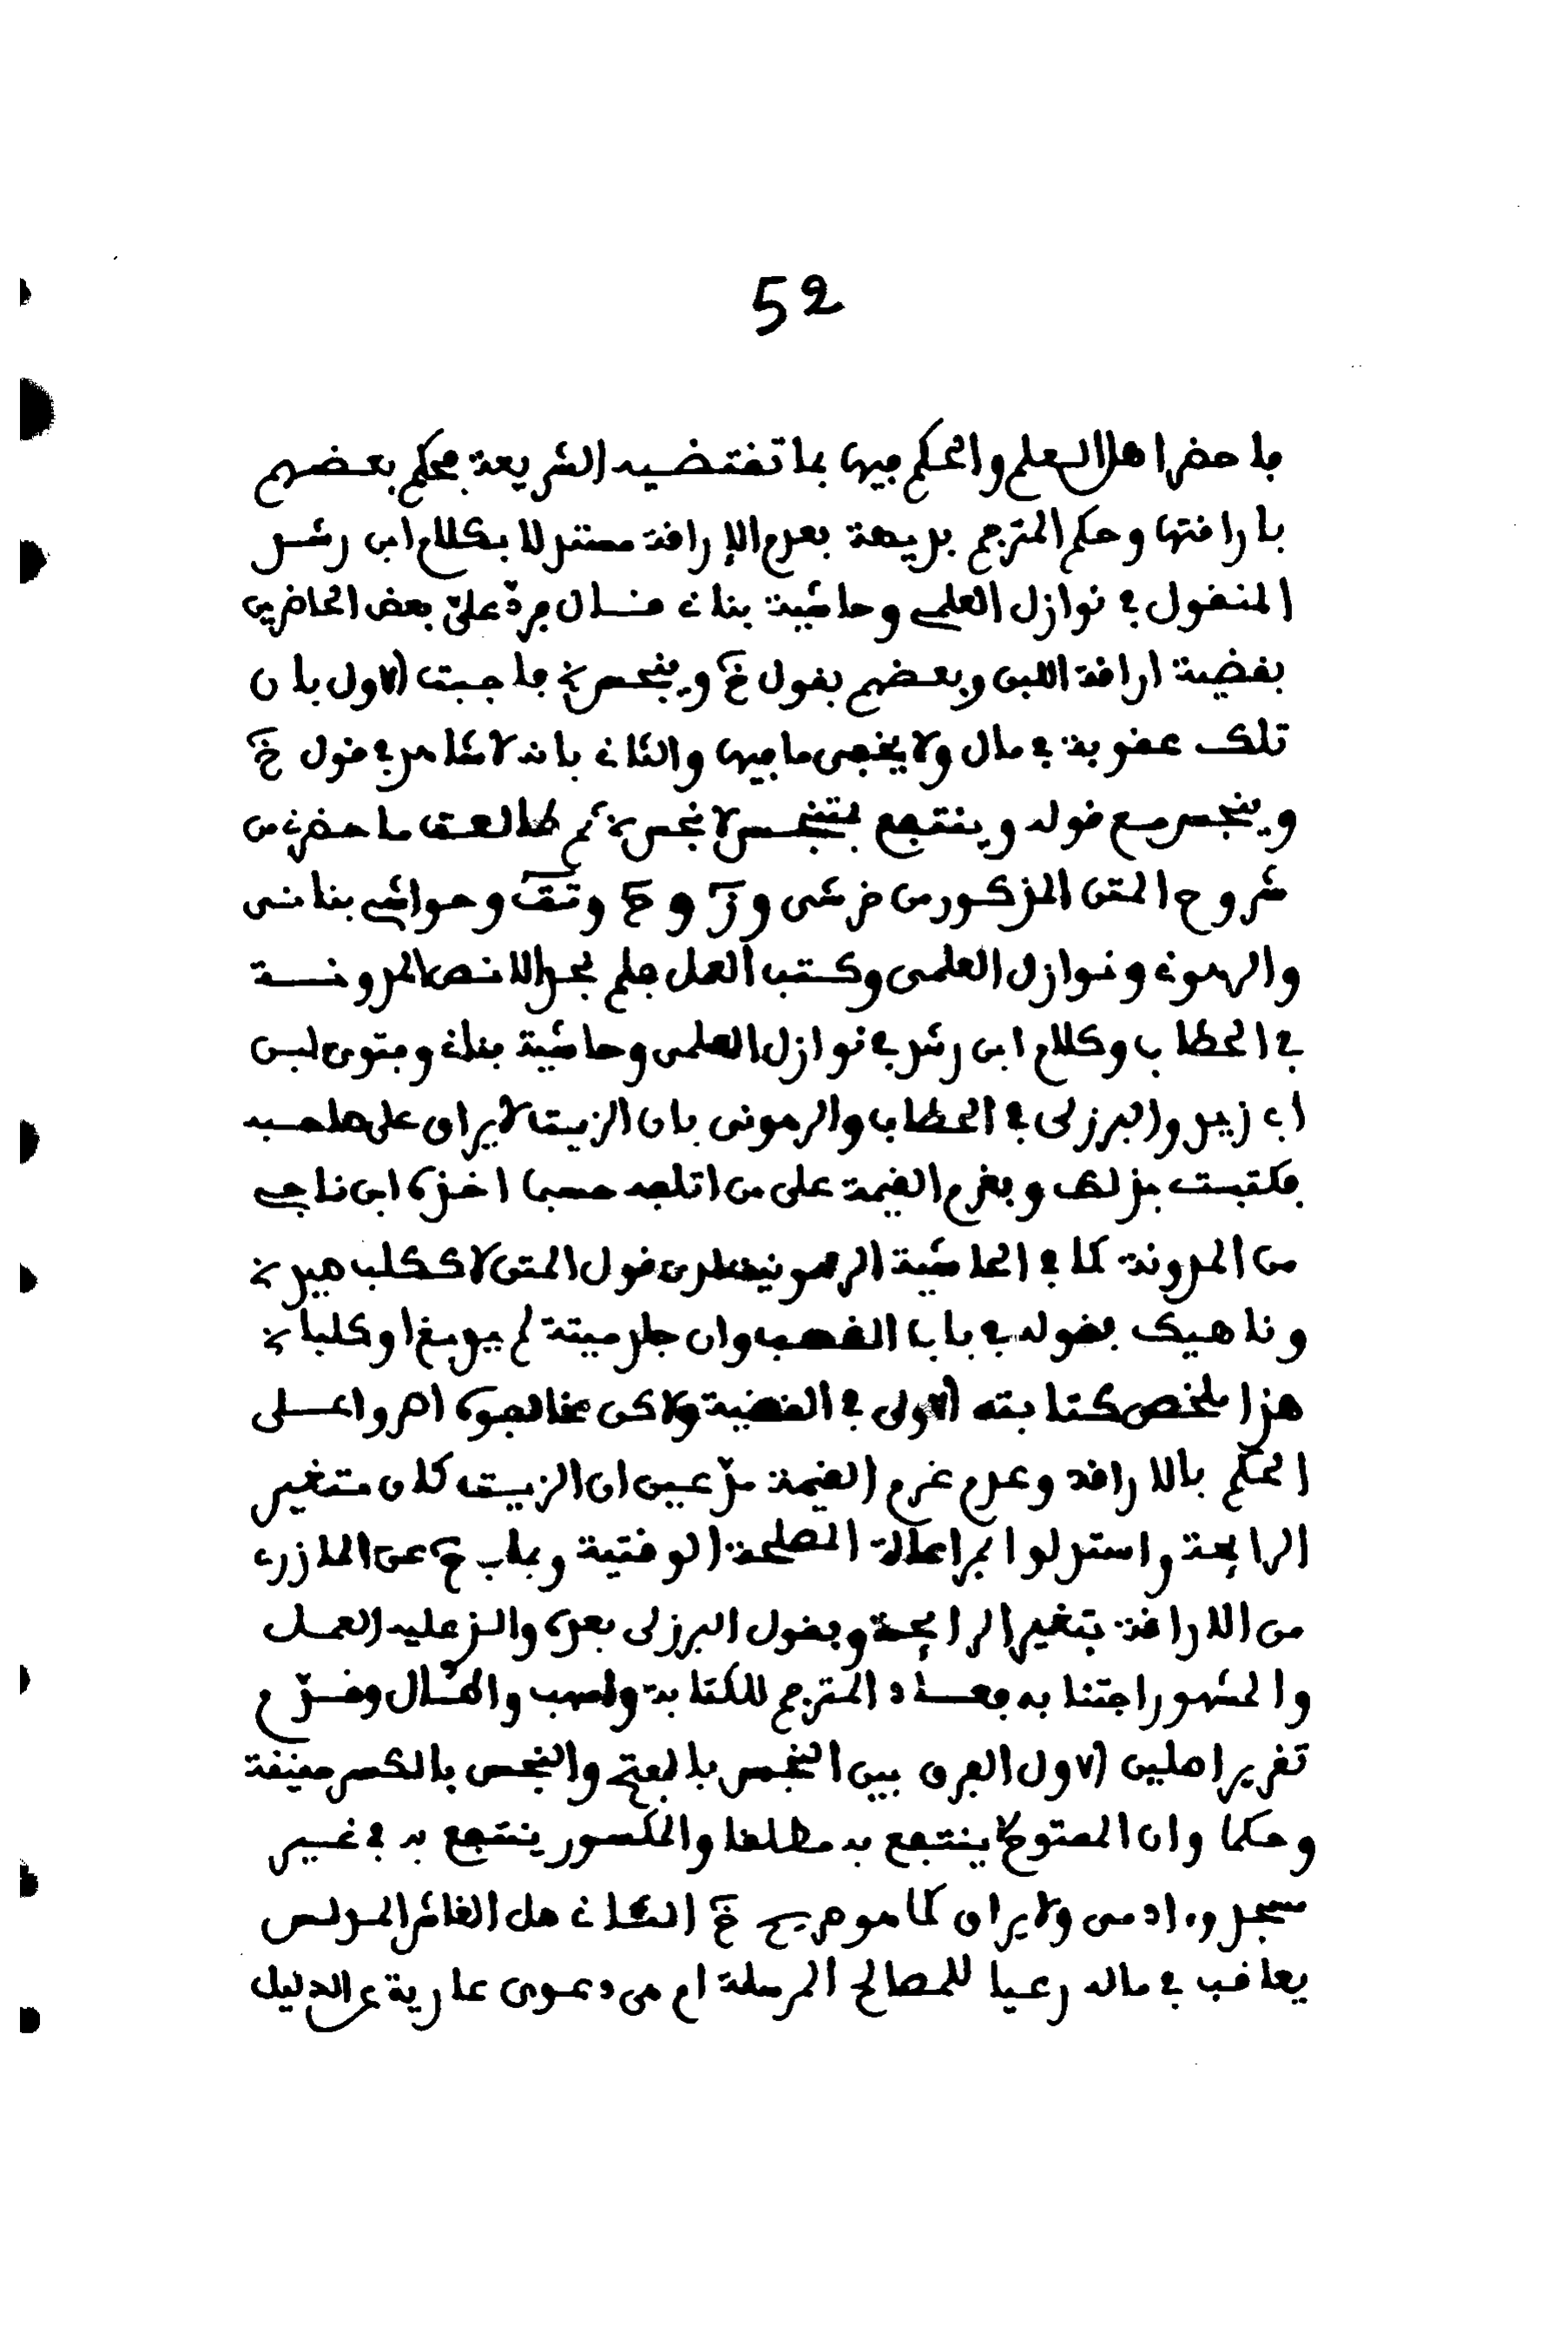 52
فاحضر اهل العلم والحكم فيها بما تقتضيه الشريعة فحكم بعضهم
باراقتها وحكم المترجم بديهة بعدم الإراقة مستدلا بكلام ابن رشد
المنقول في نوازل العلمي وحاشية بناني قال فرد علي بعض الحاضرين
بقضية اراقة اللبن وبعضهم بقول خ وينجس فاجبت الاول بان
تلك عقوبة في مال ولا يخفى ما فيها والثاني بانه لا شاهد في قول خ
وينجس مع قوله وينتفع بمتنجس لا نجس ثم طالعت ما حضرني من
شروح المتن المذكور من خرشي وز و ح وتق وحواشي بناني
والرهوني ونوازل العلمي وكتب العمل فلم نجد الا نص المدونة
في الحطاب وكلام ابن رشد في نوازل العلمي وحاشية بناني وفتوى ابن
ابي زيد والبرزلي في الحطاب والرهوني بان الزيت لا يراق على صاحبه
فكتبت بذلك وبغرم القيمة على من اتلفه حسبما اخذه ابن ناجي
من المدونة كما في الحاشية الرهونية لدى قول المتن لا ككلب صيد
وناهيك بقوله في باب الغصب وان جلد ميتة لم يدبغ او كلبا
هذا ملخص كتابته الاولى في القضية ولاكن خالفوه اصروا على
الحكم بالاراقة وعدم غرم القيمة مدّعين ان الزيت كان متغير
الرائحة واستدلوا بمراعاة المصلحة الوقتية وبما في ح عن المازري
من الاراقة بتغير الرائحة وبقول البرزلي بعده والذي عليه العمل
والمشهور افتنا به فعاد المترجم للكتابة واسهب واطال وقدّم
تقرير اصلين الاول الفرق بين النجس بالفتح والنجس بالكسر حقيقة
وحكما وان المفتوح لا ينتفع به مطلقا والمكسور ينتفع به في غير
مسجد وءادمي ولا يراق كما هو صريح خ الثاني هل الغاش المدلس
يعاقب في ماله رعيا للمصالح المرسلة ام هي دعوى عارية عن الدليل